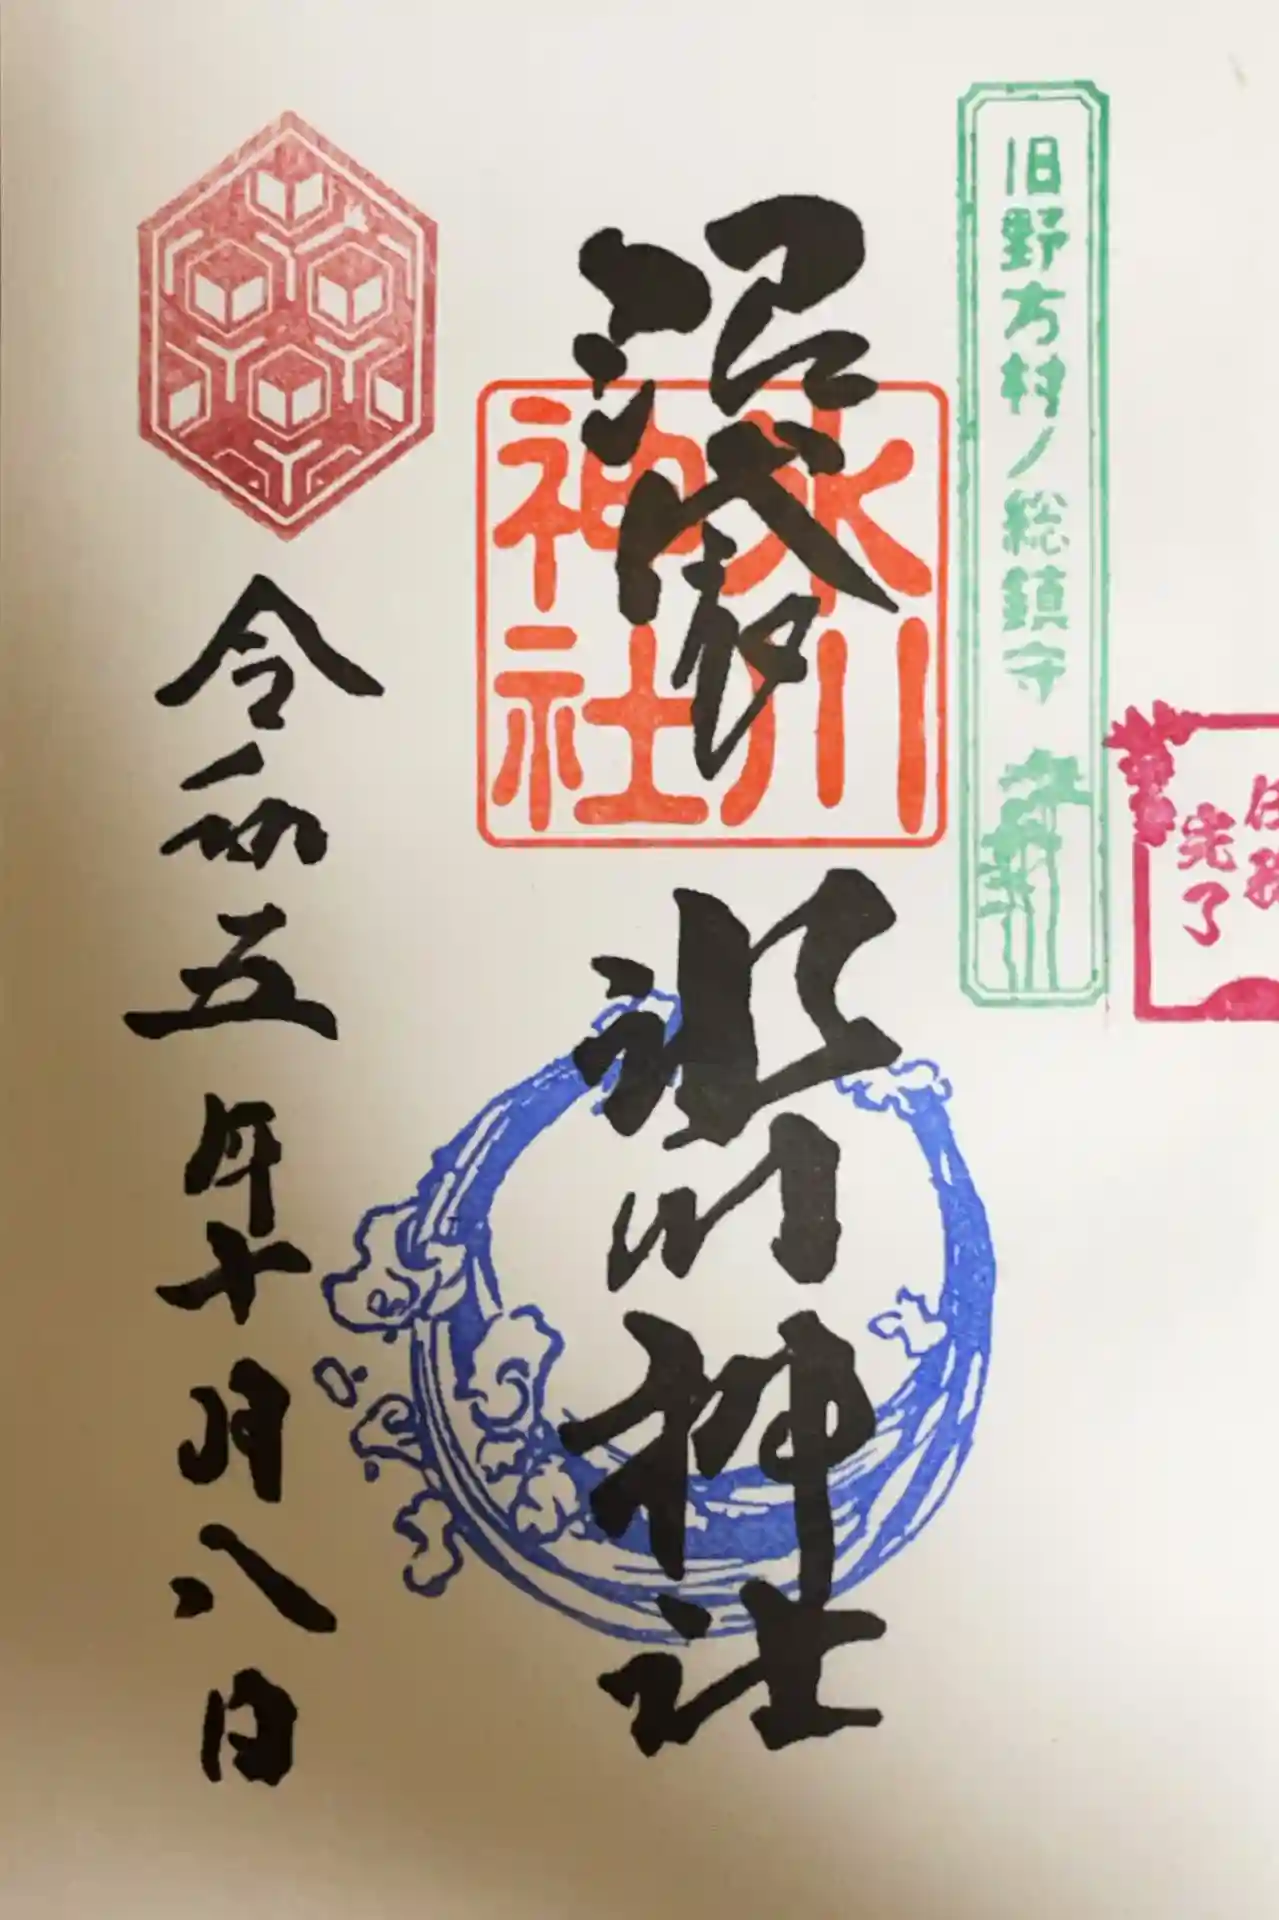 任務
完了
旧野方村ノ総鎮守
沼袋氷川神社
氷川
神社
令和五年十月八日